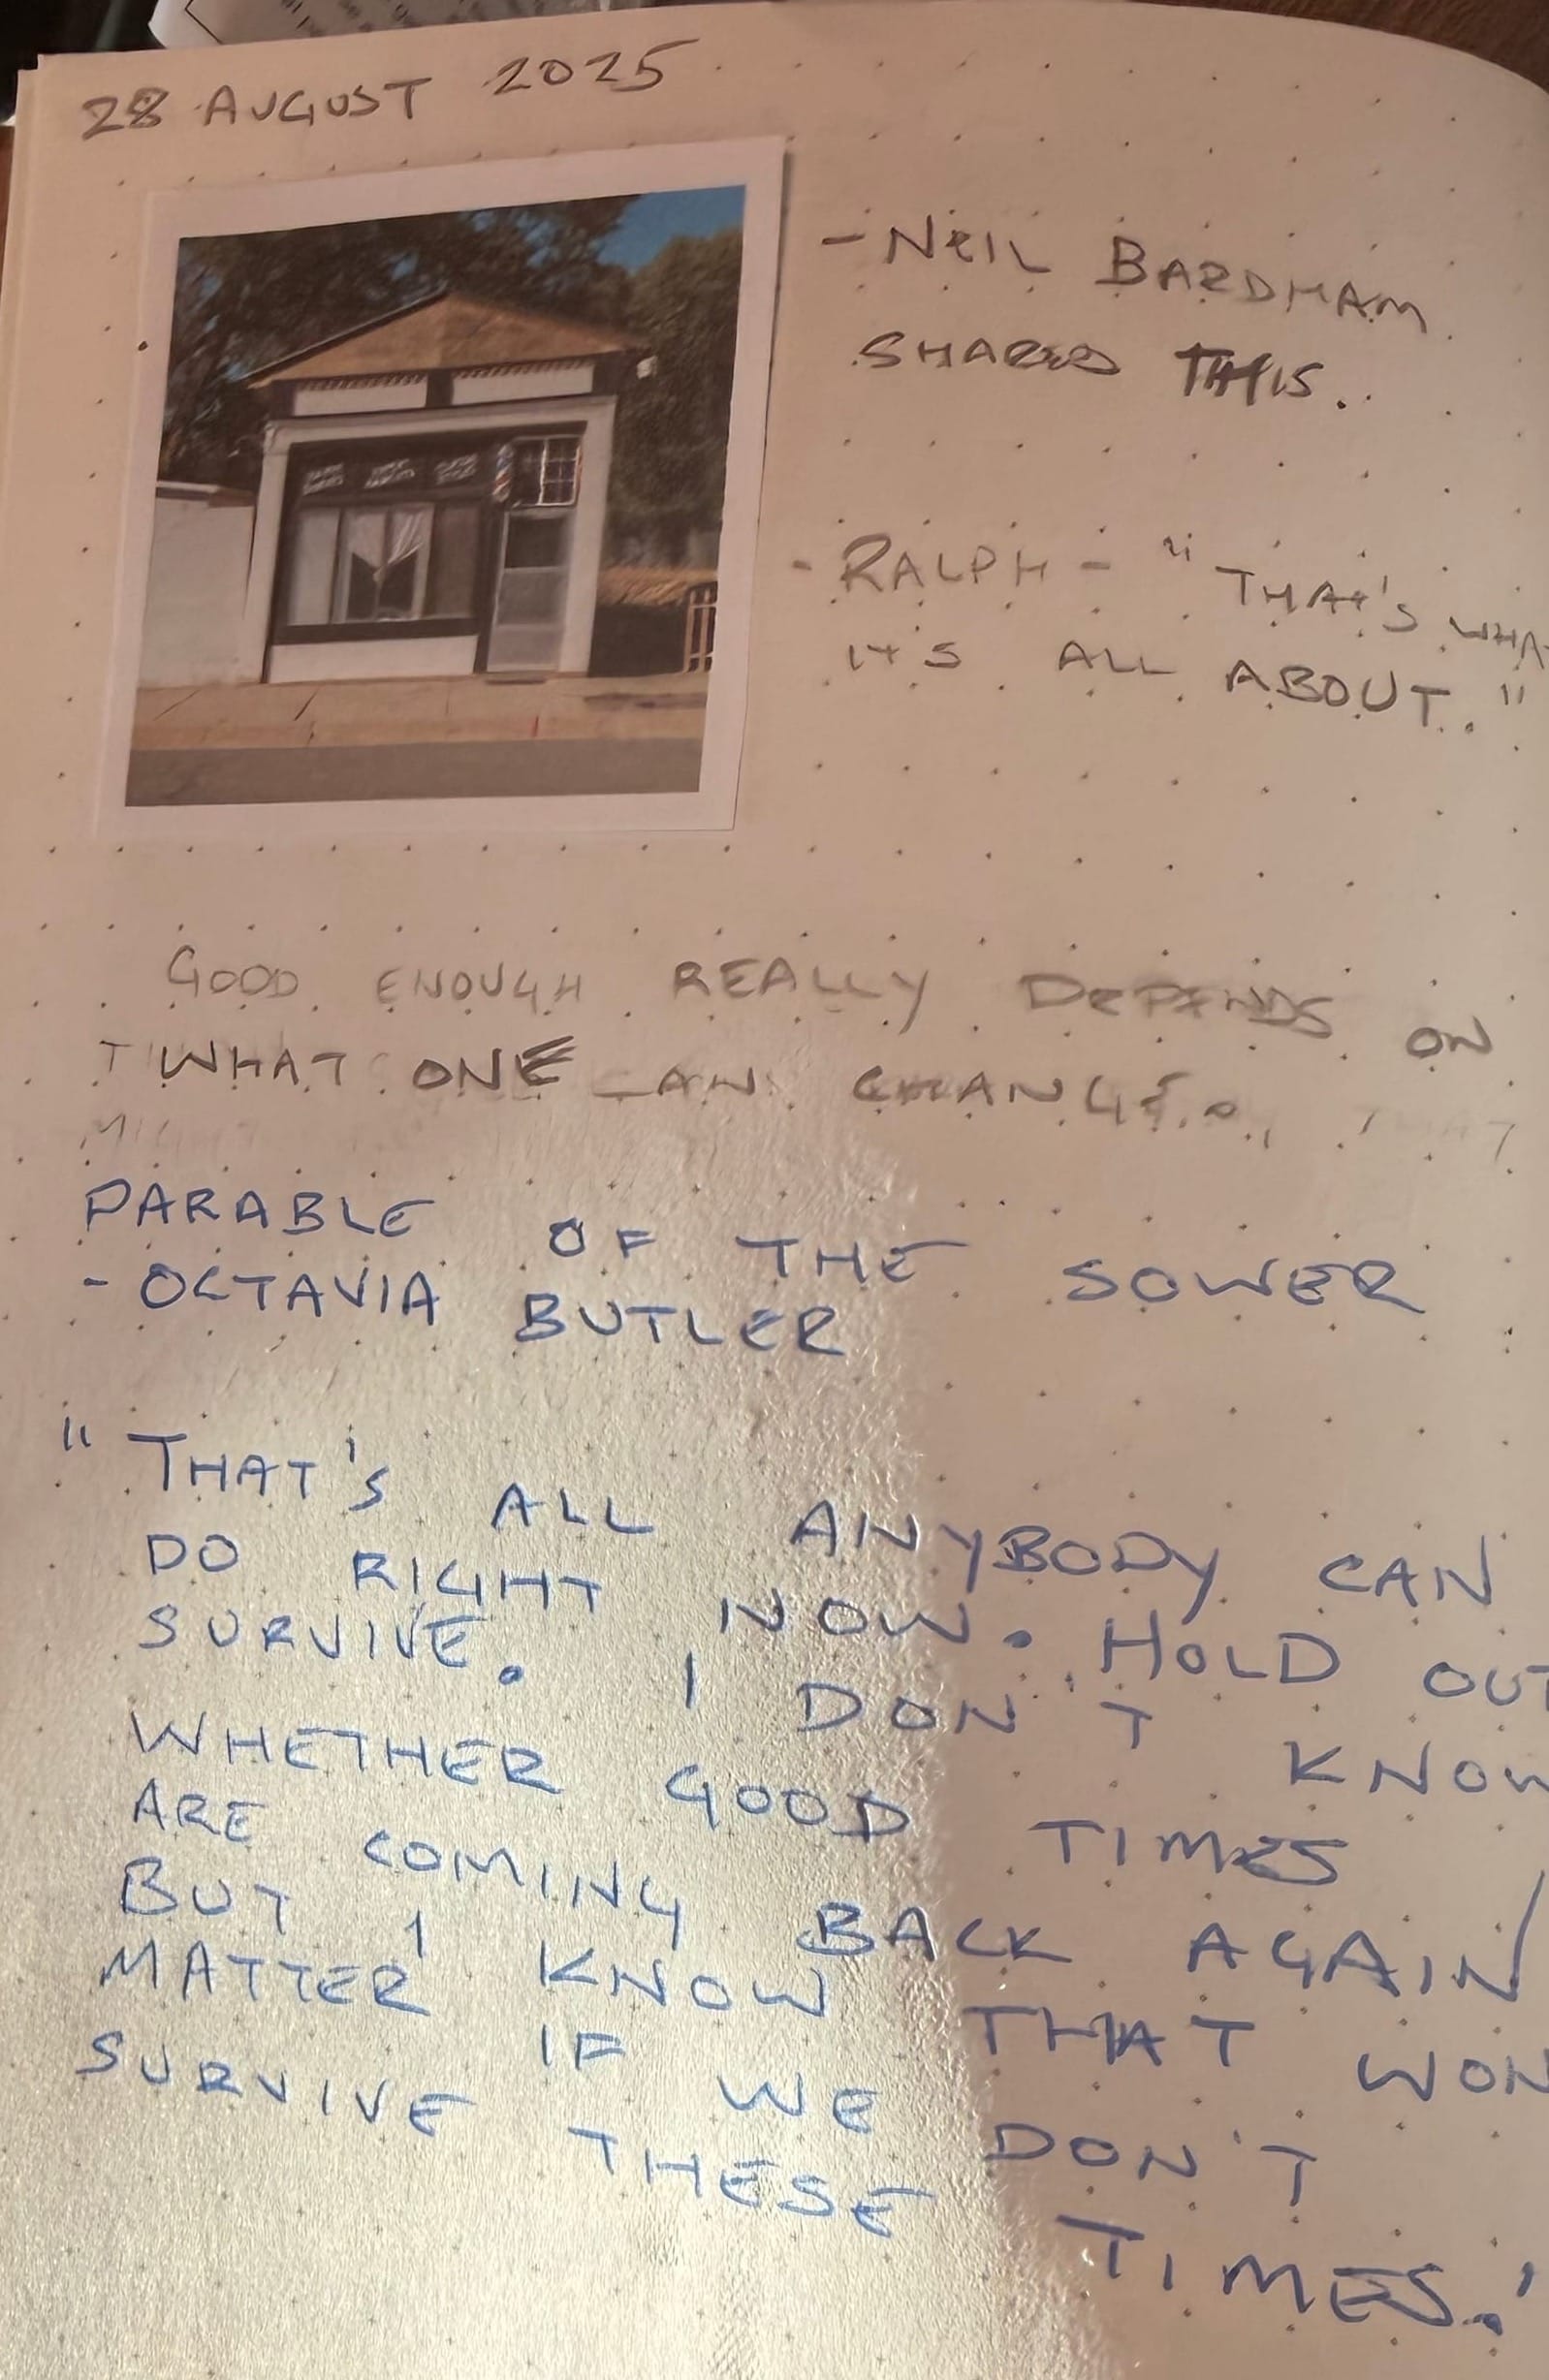 28 AUGUST 2025
- NEIL BARDHAM
SHARES THIS.
- RALPH - "THAT'S WHA
IT'S ALL ABOUT."
GOOD ENOUGH REALLY DEPENDS ON
WHAT ONE CAN CHANGE.
PARABLE OF THE SOWER
- OCTAVIA BUTLER
"THAT'S ALL ANYBODY CAN
DO RIGHT NOW. HOLD OUT
SURVIVE. I DON'T KNOW
WHETHER GOOD TIMES
ARE COMING BACK AGAIN
BUT I KNOW THAT WON
MATTER IF WE DON'T
SURVIVE THESE TIMES.'